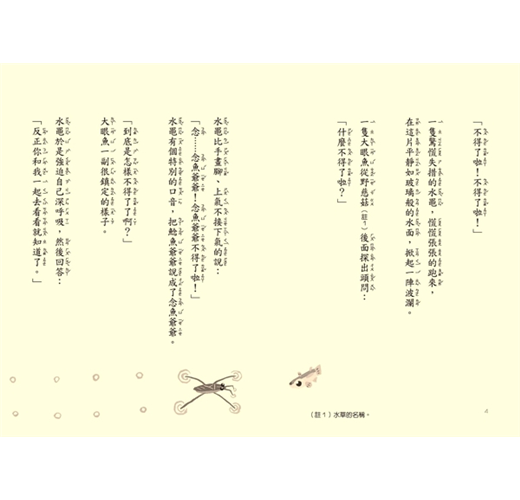 「不得了啦！不得了啦！」
一隻驚慌失措的水黽，慌慌張張的跑來，
在這片平靜如玻璃般的水面，掀起一陣波瀾。
一隻大眼魚從野慈菇（註1）後面探出頭問：
「什麼不得了啦？」
（註1）水草的名稱。
水黽比手畫腳、上氣不接下氣的說：
「念……念魚爺爺！念魚爺爺不得了啦！」
水黽有個特別的口音，把鯰魚爺爺說成了念魚爺爺。
「到底是怎樣不得了了啊？」
大眼魚一副很鎮定的樣子。
水黽於是強迫自己深呼吸，然後回答：
「反正你和我一起去看看就知道了。」